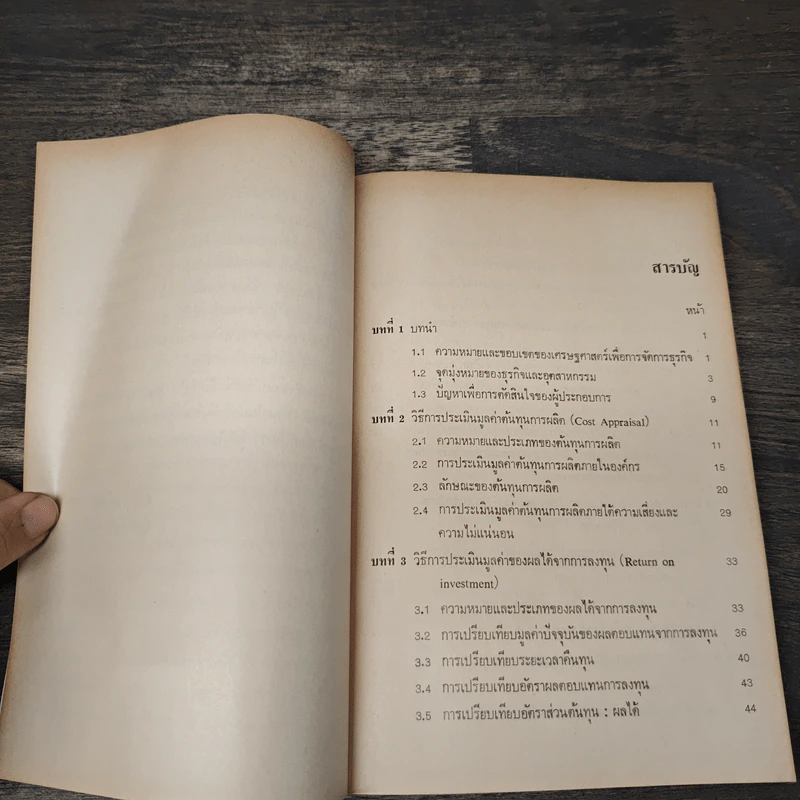 สารบัญ
หน้า
บทที่ 1 บทนำ 1
1.1 ความหมายและขอบเขตของเศรษฐศาสตร์เพื่อการจัดการธุรกิจ 1
1.2 จุดมุ่งหมายของธุรกิจและอุตสาหกรรม 3
1.3 ปัญหาเพื่อการตัดสินใจของผู้ประกอบการ 9
บทที่ 2 วิธีการประเมินมูลค่าต้นทุนการผลิต (Cost Appraisal) 11
2.1 ความหมายและประเภทของต้นทุนการผลิต 11
2.2 การประเมินมูลค่าต้นทุนการผลิตภายในองค์กร 15
2.3 ลักษณะของต้นทุนการผลิต 20
2.4 การประเมินมูลค่าต้นทุนการผลิตภายใต้ความเสี่ยงและ 29
ความไม่แน่นอน
บทที่ 3 วิธีการประเมินมูลค่าของผลได้จากการลงทุน (Return on 33
investment)
3.1 ความหมายและประเภทของผลได้จากการลงทุน 33
3.2 การเปรียบเทียบมูลค่าปัจจุบันของผลตอบแทนจากการลงทุน 36
3.3 การเปรียบเทียบระยะเวลาคืนทุน 40
3.4 การเปรียบเทียบอัตราผลตอบแทนการลงทุน 43
3.5 การเปรียบเทียบอัตราส่วนต้นทุน : ผลได้ 44